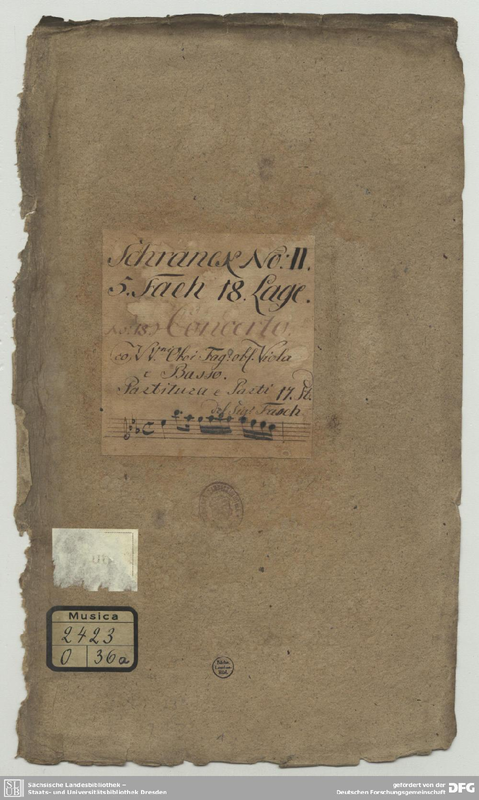 Schranck No: II.
5. Fach 18. Lage.
Concerto.
co VV.ni Oboi Fag: obl. Viola
e Basso.
Partitura e Parti 17. St.
del Sigr Fasch.
Musica
2423
O 36a
Sächs.
Landes-
Bibl.
SLUB
Sächsische Landesbibliothek –
Staats- und Universitätsbibliothek Dresden
gefördert von der
Deutschen Forschungsgemeinschaft
DFG